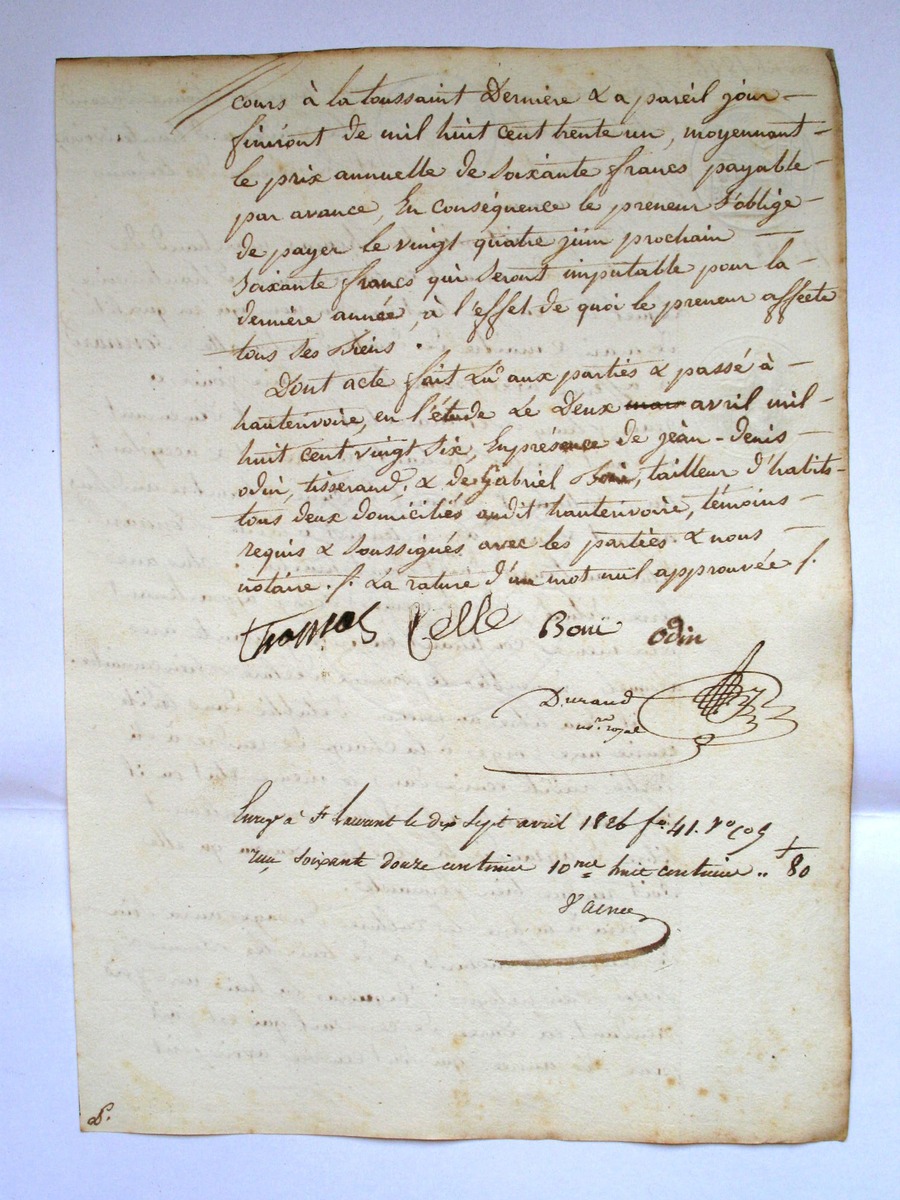 cours à la toussaint Dernière & a pareil jour
finiront de mil huit cent trente un, moyennant
le prix annuelle de soixante francs payable
par avance, En conséquence le preneur s'oblige
de payer le vingt quatre juin prochain
soixante francs qui seront imputable pour la
dernière année, à l'effet de quoi le preneur affecte
tous ses Biens.
Dont acte fait Lu aux parties & passé à
hauterivoire, en l'étude Le Deux mars avril mil
huit cent vingt six, En présence de jean-denis
odin, tisserand, & de Gabriel Boni, tailleur d'habits
tous deux domiciliés audit hauterivoire, témoins
requis & soussignés avec les parties & nous
notaire. /. La rature d'un mot nul approuvée /.
Celle Boni odin
Durand
nore royal
Enregé à St Laurent le dix sept avril 1826 fo 41. Vo Cos
reçu soixante douze centime 10me huit centime .. 80